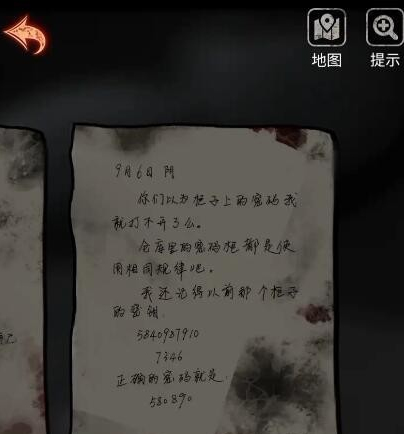 地图
提示
9月6日 阴
你们以为柜子上的密码我
就打不开了么。
仓库里的密码柜都是使
用相同规律吧。
我还记得以前那个柜子
的密码.
5840987910
7346
正确的密码就是.
580890